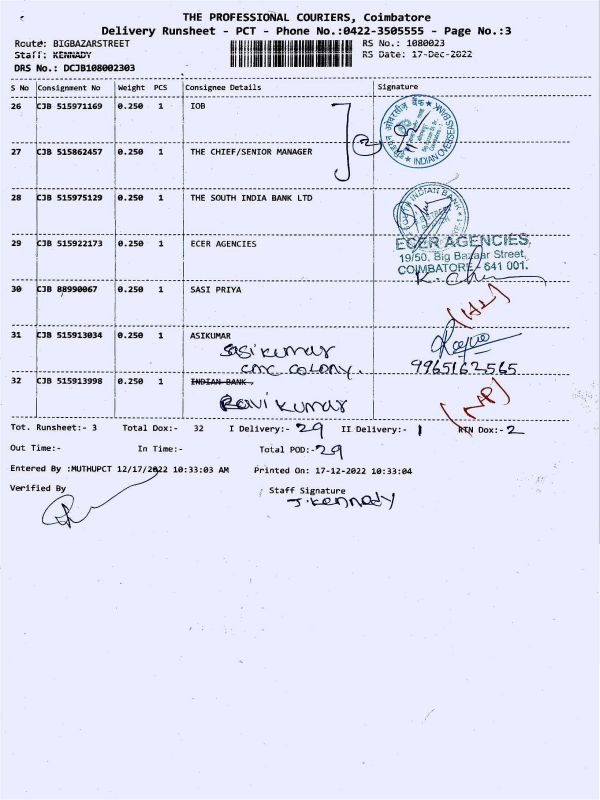 THE PROFESSIONAL COURIERS, Coimbatore
Delivery Runsheet - PCT - Phone No.:0422-3505555 - Page No.:3
Route: BIGBAZARSTREET RS No.: 1080023
Staff: KENNADY RS Date: 17-Dec-2022
DRS No.: DCJB108002303
S No Consignment No Weight PCS Consignee Details Signature
26 CJB 515971169 0.250 1 IOB
2
INDIAN OVERSEAS BANK
27 CJB 515862457 0.250 1 THE CHIEF/SENIOR MANAGER
28 CJB 515975129 0.250 1 THE SOUTH INDIA BANK LTD
INDIAN BANK
29 CJB 515922173 0.250 1 ECER AGENCIES
ECER AGENCIES,
19/50, Big Bazaar Street,
COIMBATORE - 641 001.
30 CJB 88990067 0.250 1 SASI PRIYA
31 CJB 515913034 0.250 1 ASIKUMAR
Sasikumar
CMC COLONY.
9965162565
32 CJB 515913998 0.250 1 INDIAN BANK,
Ravikumar
(NP)
Tot. Runsheet:- 3 Total Dox:- 32 I Delivery:- 29 II Delivery:- 1 RTN Dox:- 2
Out Time:- In Time:- Total POD:- 29
Entered By :MUTHUPCT 12/17/2022 10:33:03 AM Printed On: 17-12-2022 10:33:04
Verified By Staff Signature
J. Kennady